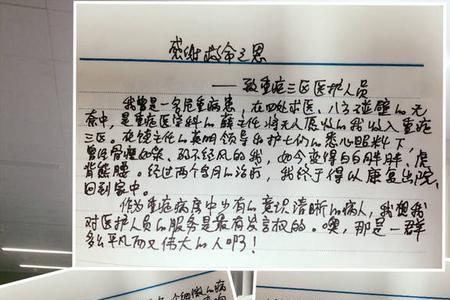 感谢救命之恩
——致重症三区医护人员
我曾是一名危重病患，在四处求医、八方碰壁的无
奈中，是重症医学科的薛主任将无人愿收的我收入重症
三区。在德主任的英明领导的护士们的悉心照料下，
曾经骨瘦如柴、弱不经风的我，如今变得白白胖胖，虎
背熊腰。经过两个含月的治疗，我终于得以康复出院，
回到家中。
作为重症病房中少有的意识清晰的病人，我想我
对医护人员的服务是最有发言权的。噢，那是一群
多么平凡而又伟大的人啊！